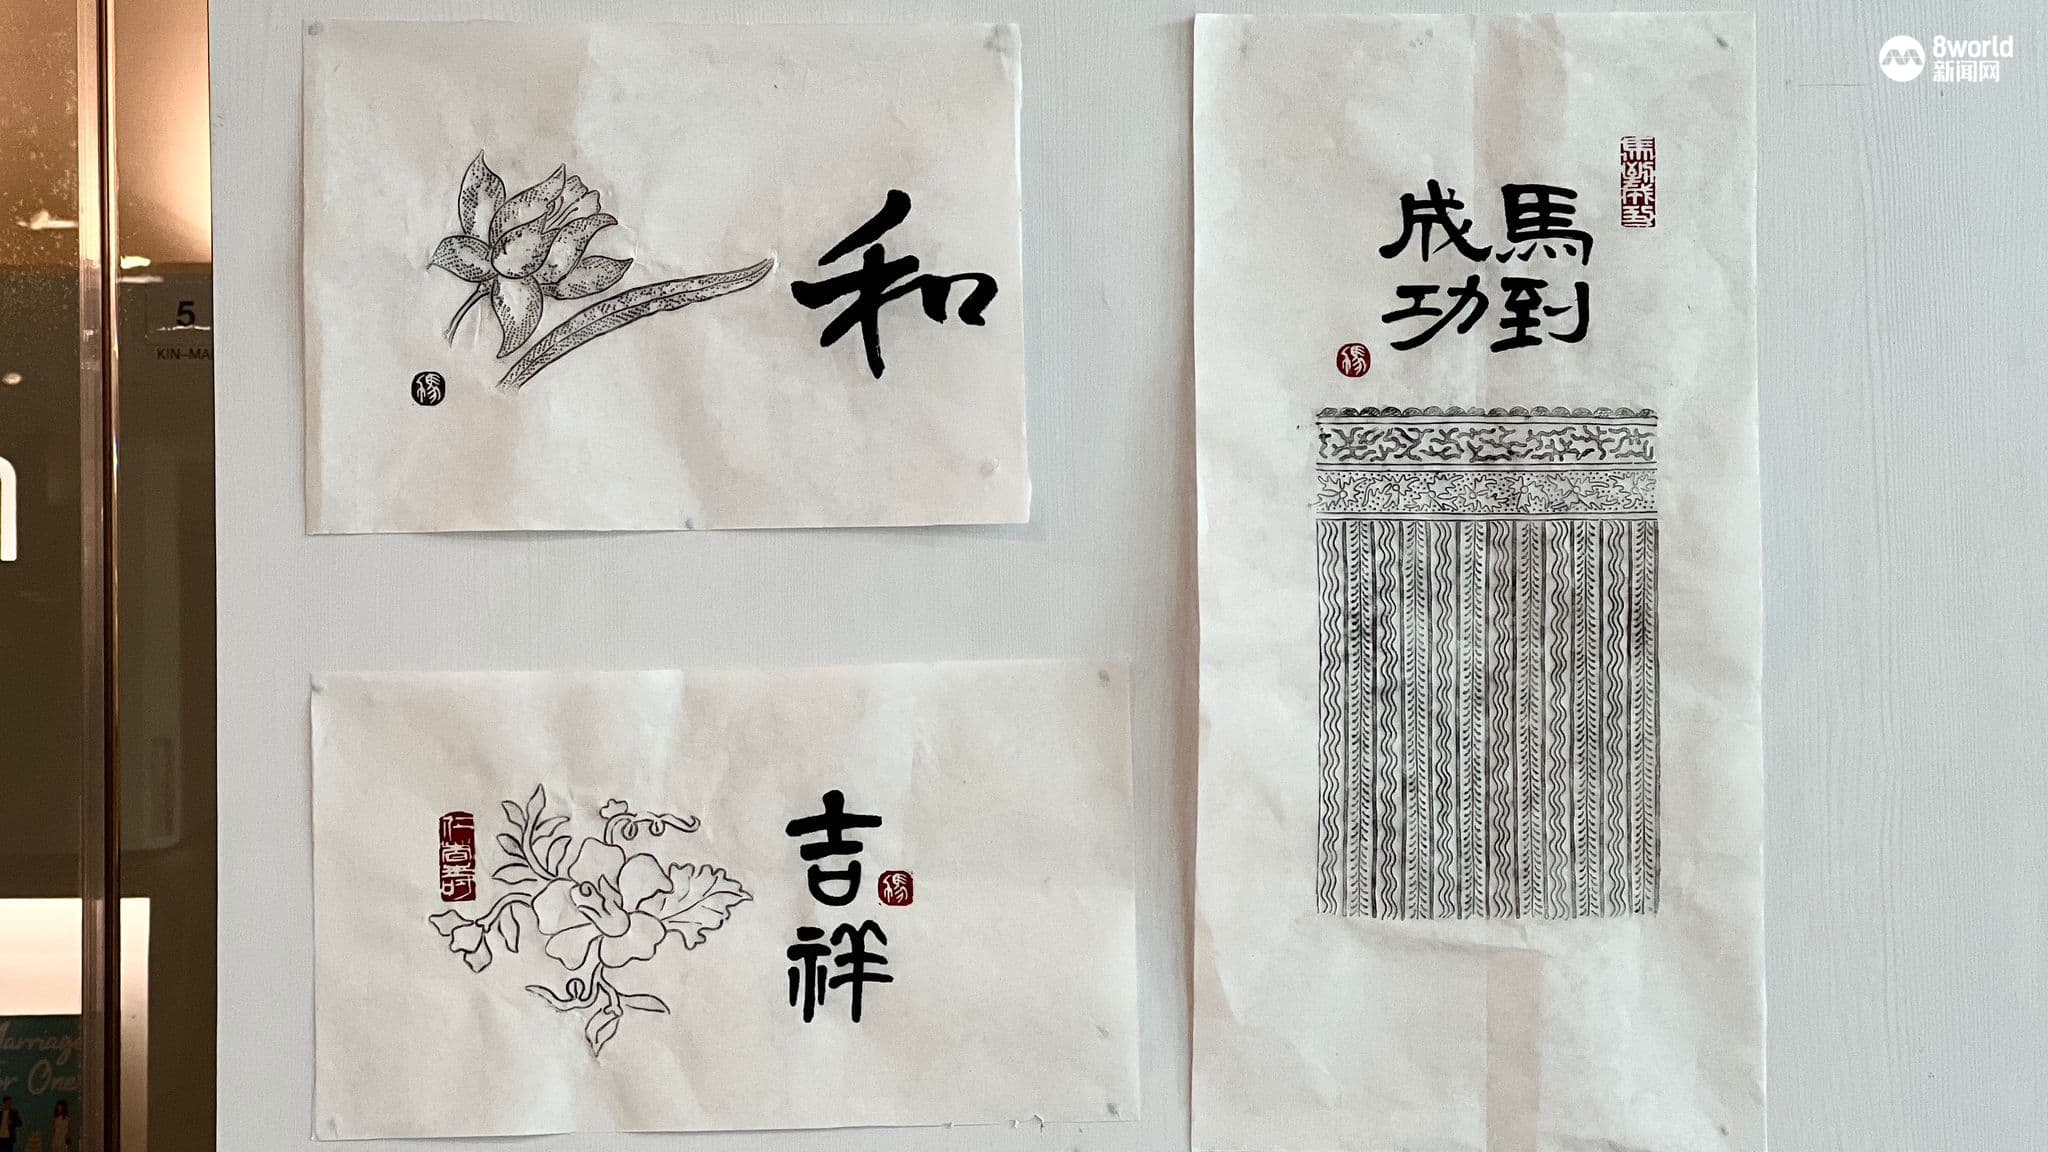 8world
新闻网
5
KIN-MA
和
馬到
成功
吉祥
仁者壽
Marriage
or One